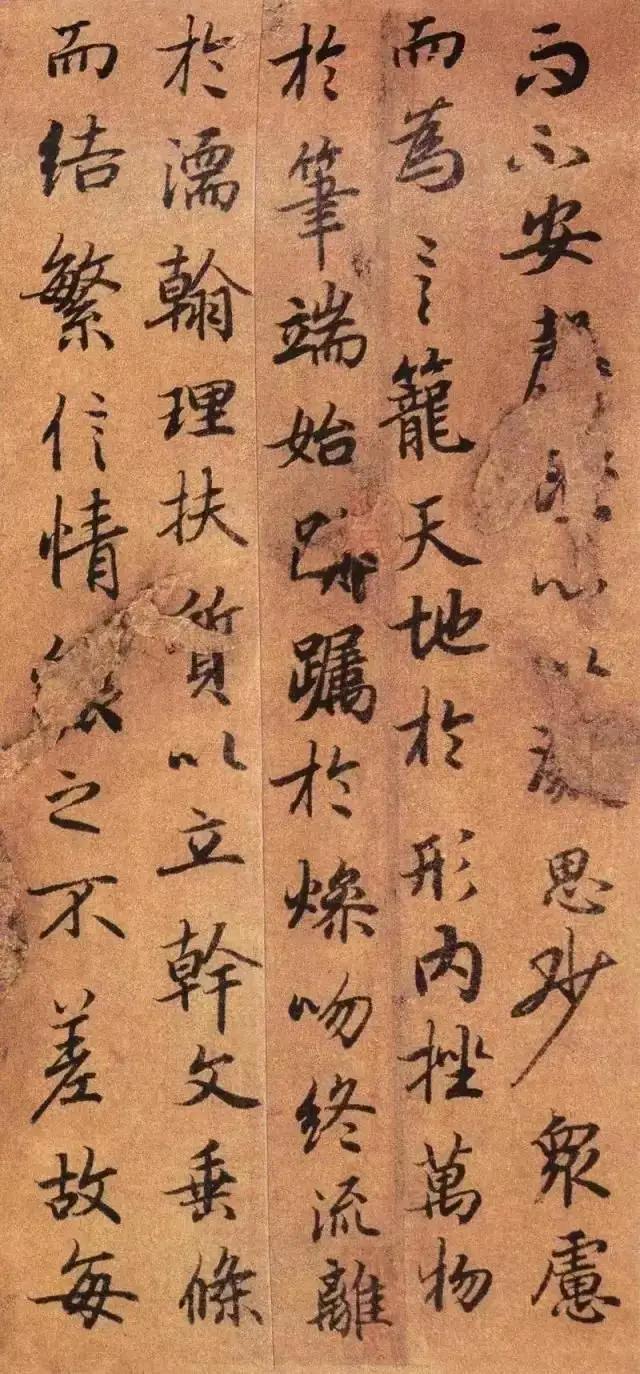 而不安罄心以思眇眾慮
而為言籠天地於形內挫萬物
於筆端始躅於燥吻終流離
於濡翰理扶質以立幹文垂條
而結繁信情之不差故每